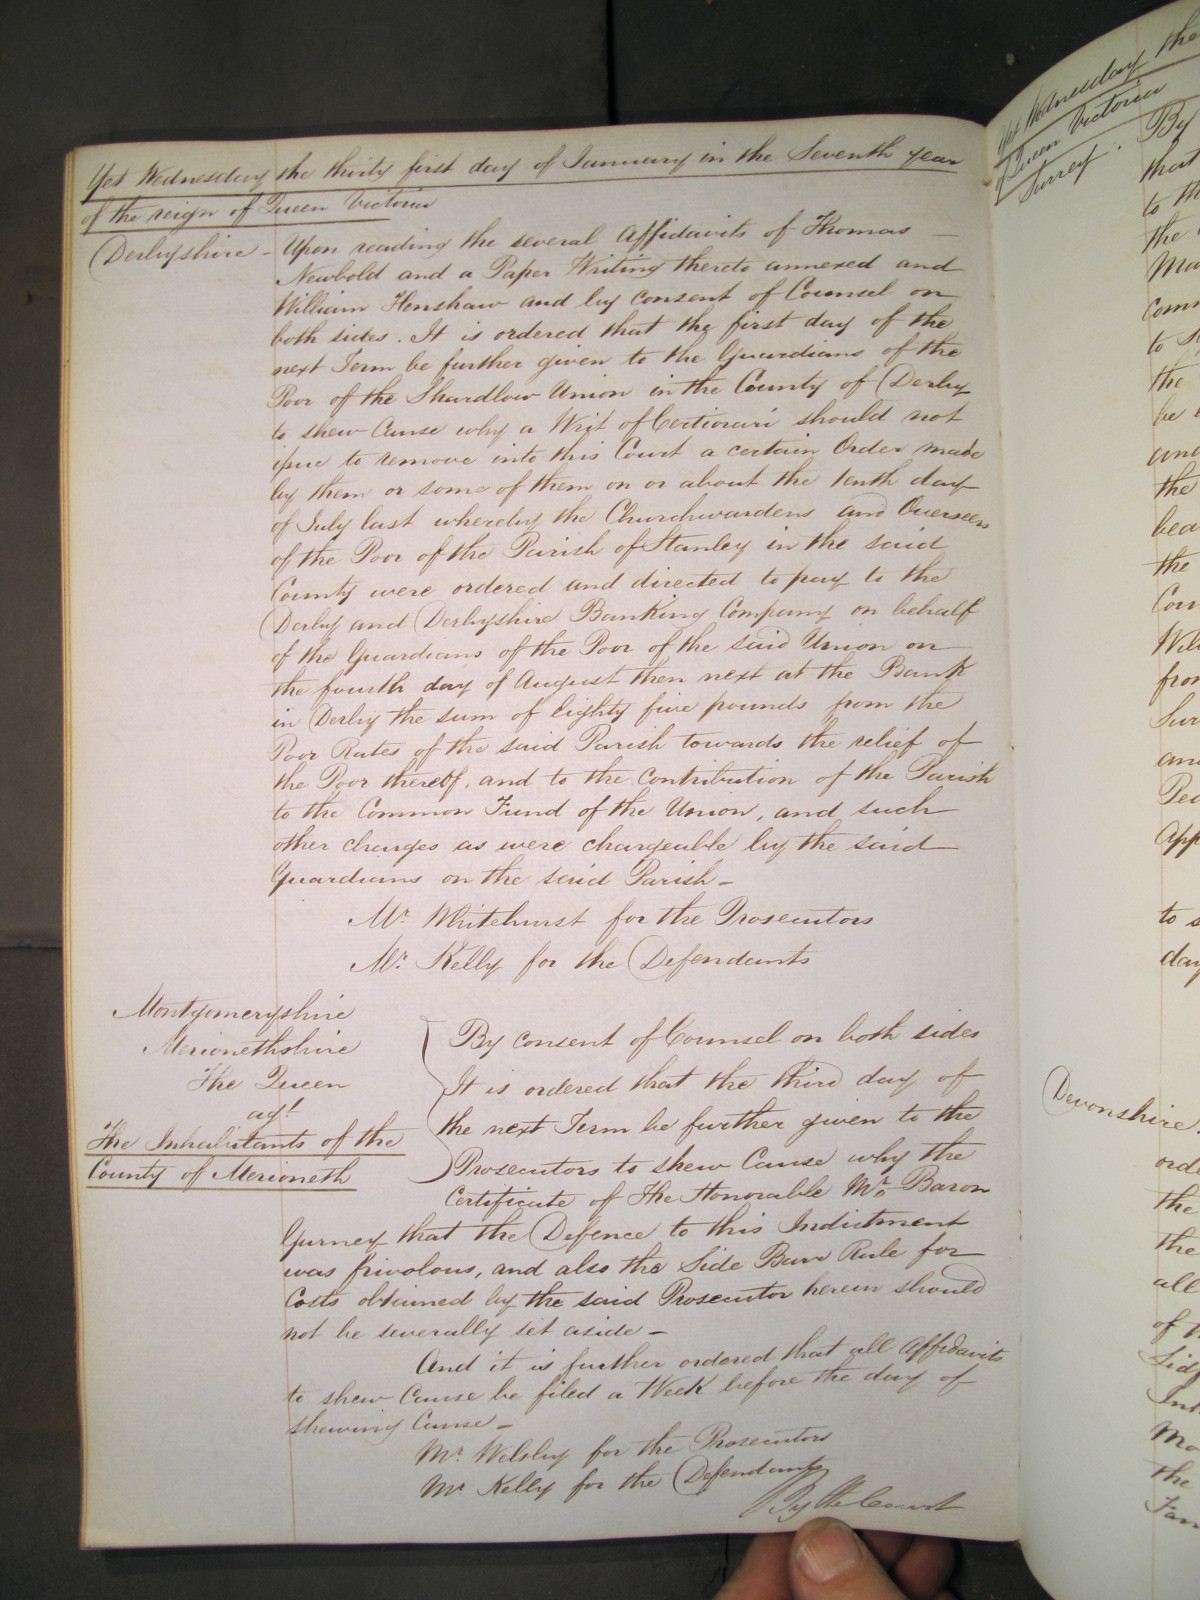 Yet Wednesday the thirty first day of January in the Seventh year
of the reign of Queen Victoria
Derbyshire - Upon reading the several Affidavits of Thomas
Newbold and a Paper Writing thereto annexed and
William Henshaw and by consent of Counsel on
both sides. It is ordered that the first day of the
next Term be further given to the Guardians of the
Poor of the Shardlow Union in the County of Derby
to shew Cause why a Writ of Certiorari should not
issue to remove into this Court a certain Order made
by them or some of them on or about the tenth day
of July last whereby the Churchwardens and Overseers
of the Poor of the Parish of Stanley in the said
County were ordered and directed to pay to the
Derby and Derbyshire Banking Company on behalf
of the Guardians of the Poor of the said Union on
the fourth day of August then next at the Bank
in Derby the sum of Eighty five pounds from the
Poor Rates of the said Parish towards the relief of
the Poor thereof, and to the Contribution of the Parish
to the Common Fund of the Union, and such
other charges as were chargeable by the said
Guardians on the said Parish -
Mr. Whitehurst for the Prosecutors
Mr. Kelly for the Defendants
Montgomeryshire
Merionethshire
The Queen
agt
The Inhabitants of the
County of Merioneth
By consent of Counsel on both sides
It is ordered that the third day of
the next Term be further given to the
Prosecutors to shew Cause why the
Certificate of The Honorable Mr. Baron
Gurney that the Defence to this Indictment
was frivolous, and also the Side Bar Rule for
Costs obtained by the said Prosecutor herein should
not be severally set aside -
And it is further ordered that all Affidavits
to shew Cause be filed a Week before the day of
shewing Cause -
Mr. Welsby for the Prosecutors
Mr. Kelly for the Defendants
By the Court
Yet Wednesday the
Queen Victoria
Surrey
By
that
to th
the
Ma
comm
to
the
be
and
the
bea
the
Cou
Will
from
Sur
and
Pe
App
to s
day
Devonshire
orde
the
the
all
of
Int
Mo
the